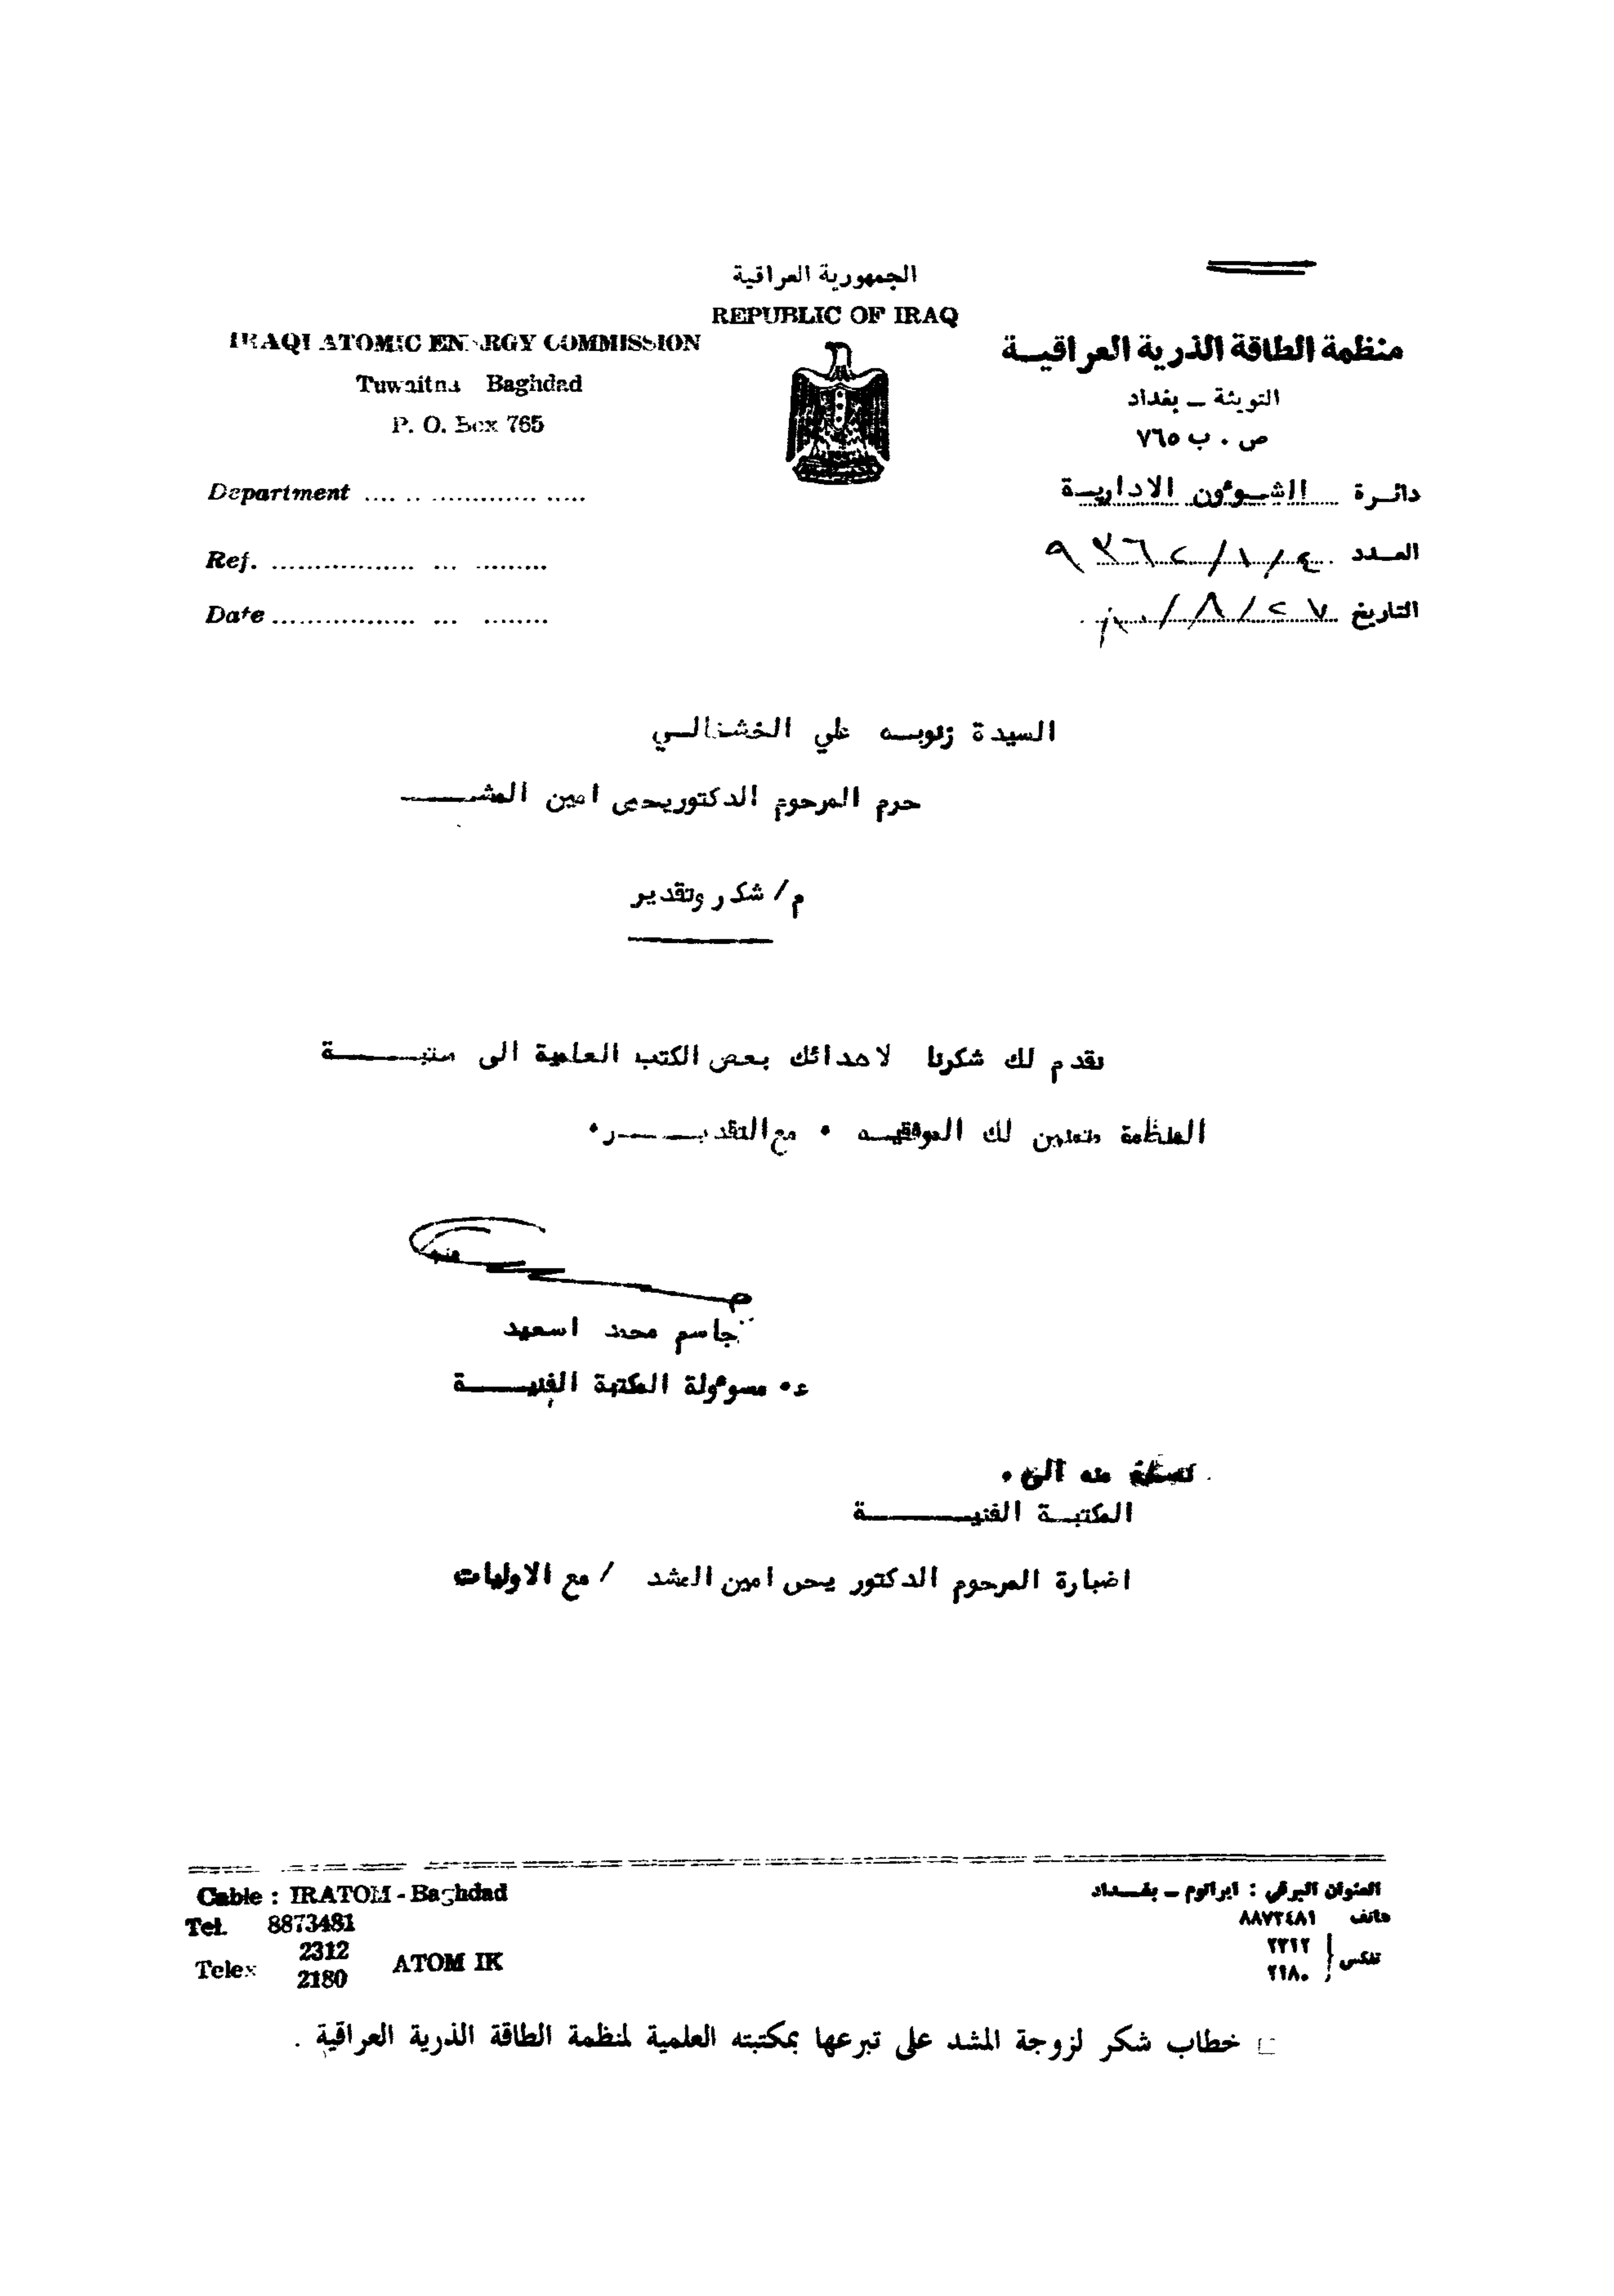 الجمهورية العراقية
REPUBLIC OF IRAQ
IRAQI ATOMIC ENERGY COMMISSION
Tuwaitha Baghdad
P. O. Box 765
Department
Ref.
Date
منظمة الطاقة الذرية العراقيــة
التويثة ــ بغداد
ص . ب ٧٦٥
دائـرة الشـوءون الاداريـة
العــدد ٤/١/
التاريخ ٢٧/٨/
السيدة زنوبـه علي الخشخالـي
حرم المرحوم الدكتور يحيى امين المشـــــ
م/ شكر وتقدير
نقدم لك شكرنا لاهدائك بعض الكتب العلمية الى مكتبــــــة
المنظمة متمنين لك الموفقيـه • مع التقديـــــــر•
جاسم محمد اسعيد
ع• مسوءولة المكتبة الفنيـــــة
نسخة منه الى •
المكتبـة الفنيــــــــة
اضبارة المرحوم الدكتور يحيى امين المشد / مع الاوليات
Cable : IRATOM - Baghdad
Tel. 8873481
Telex 2312
2180
ATOM IK
العنوان البرقي : ايراتوم ــ بغــداد
هاتف ٨٨٧٣٤٨١
تلكس ٢٣١٢
٢١٨٠
□ خطاب شكر لزوجة المشد على تبرعها بمكتبته العلمية لمنظمة الطاقة الذرية العراقية .